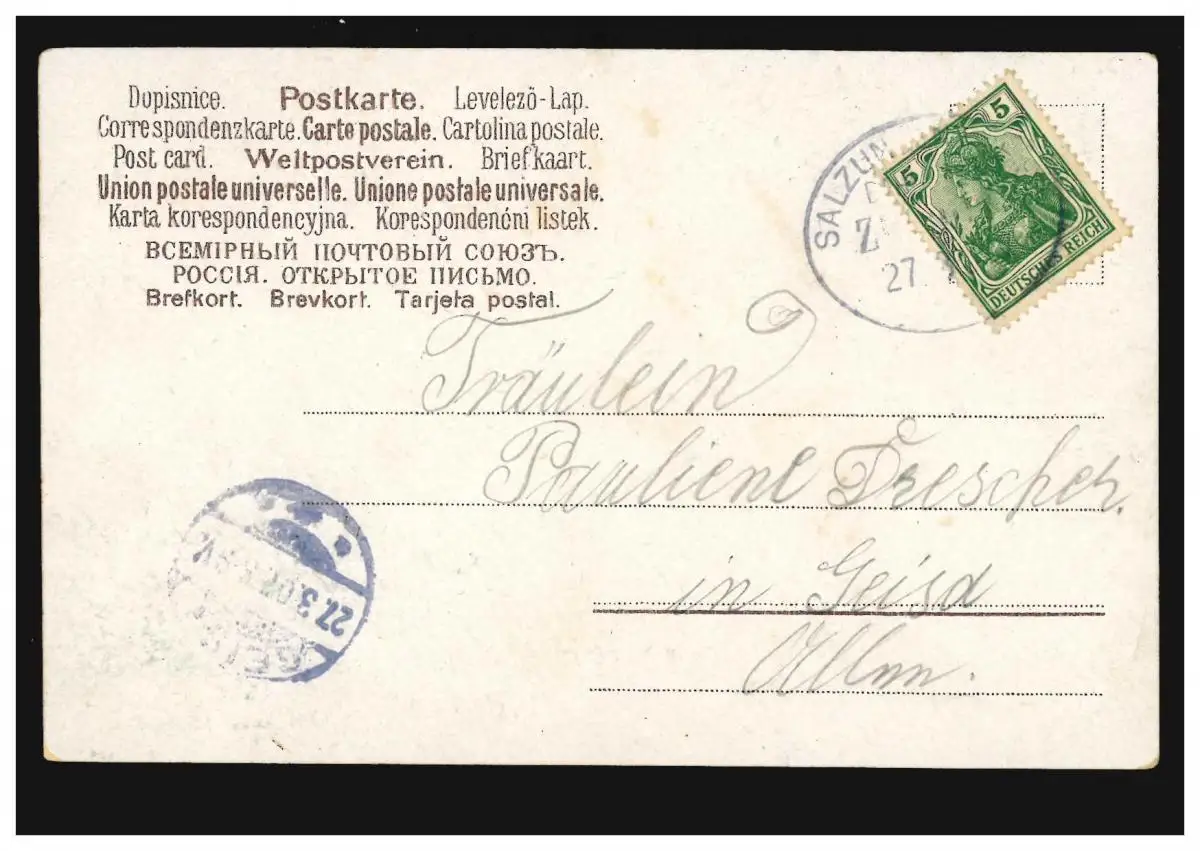 Dopisnice. Postkarte. Levelező-Lap.
Correspondenzkarte. Carte postale. Cartolina postale.
Post card. Weltpostverein. Briefkaart.
Union postale universelle. Unione postale universale.
Karta korespondencyjna. Korespondenční listek.
ВСЕМІРНЫЙ ПОЧТОВЫЙ СОЮЗЪ.
РОССІЯ. ОТКРЫТОЕ ПИСЬМО.
Brefkort. Brevkort. Tarjeta postal.
SALZUN
Z
27.
5
5
DEUTSCHES REICH
Fräulein
Pauliene Drescher.
in Geisa
27.3.0